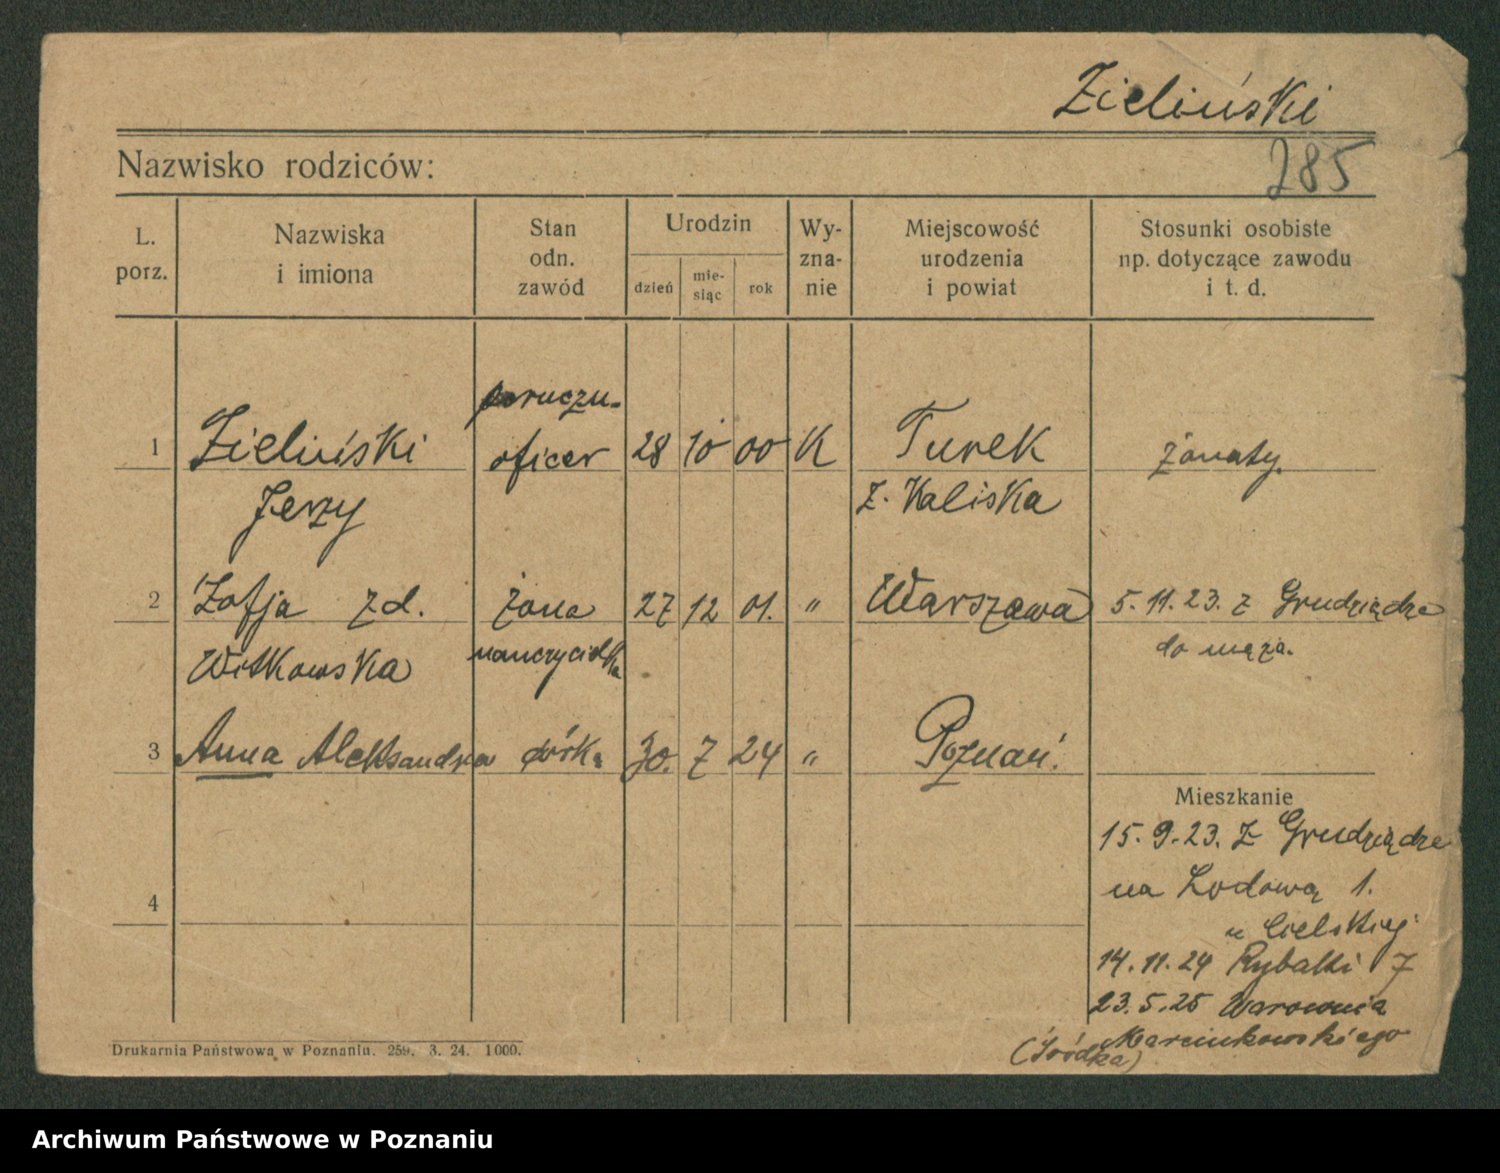 Zieliński
Nazwisko rodziców:
285
L. porz.
Nazwiska i imiona
Stan odn. zawód
Urodzin
dzień
mie-siąc
rok
Wy-zna-nie
Miejscowość urodzenia i powiat
Stosunki osobiste np. dotyczące zawodu i t. d.
poruczn.
1 Zieliński oficer 28 10 00 K Turek żonaty.
Jerzy z. Kaliska
2 Zofja zd. żona 27 12 01. " Warszawa 5. 11. 23. z Grudziądza
Witkowska nauczycielka do męża.
3 Anna Aleksandra córka 30. 7 24 " Poznań.
Mieszkanie
15. 9. 23. z Grudziądza
4 na Lodową 1.
u Cielskiej
14. 11. 24 Rybaki 7
23. 5. 25 Warownia
Marcinkowskiego
(Śródka)
Drukarnia Państwowa w Poznaniu. 259. 3. 24. 1000.
Archiwum Państwowe w Poznaniu